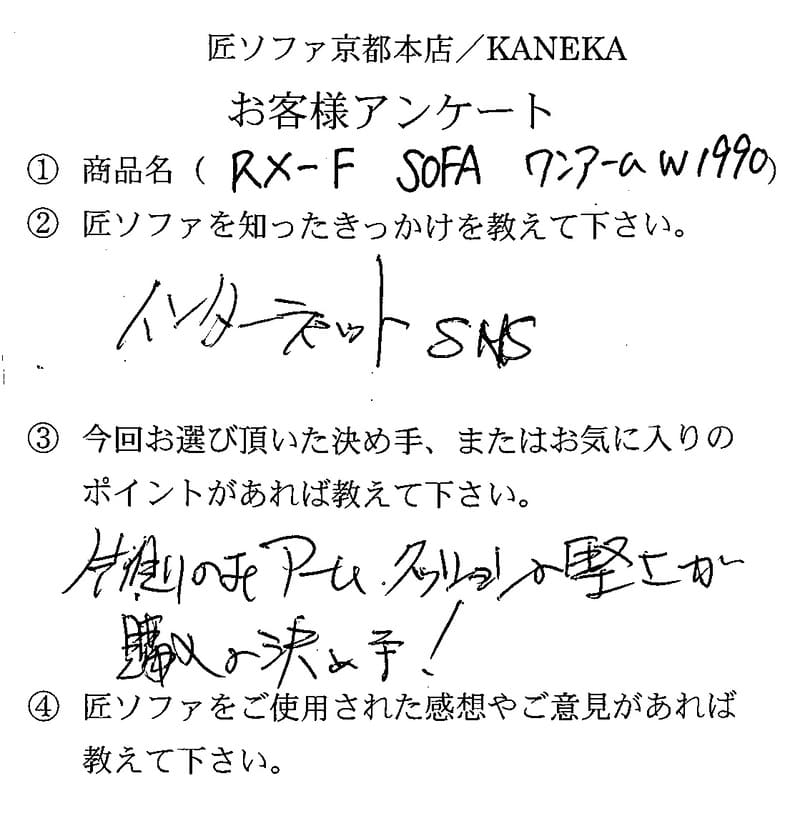 匠ソファ京都本店／KANEKA
お客様アンケート
① 商品名（ RX-F SOFA ワンアーム W1990）
② 匠ソファを知ったきっかけを教えて下さい。
インターネット SNS
③ 今回お選び頂いた決め手、またはお気に入りの
ポイントがあれば教えて下さい。
アーム、クッションの堅さが
購入の決め手！
④ 匠ソファをご使用された感想やご意見があれば
教えて下さい。